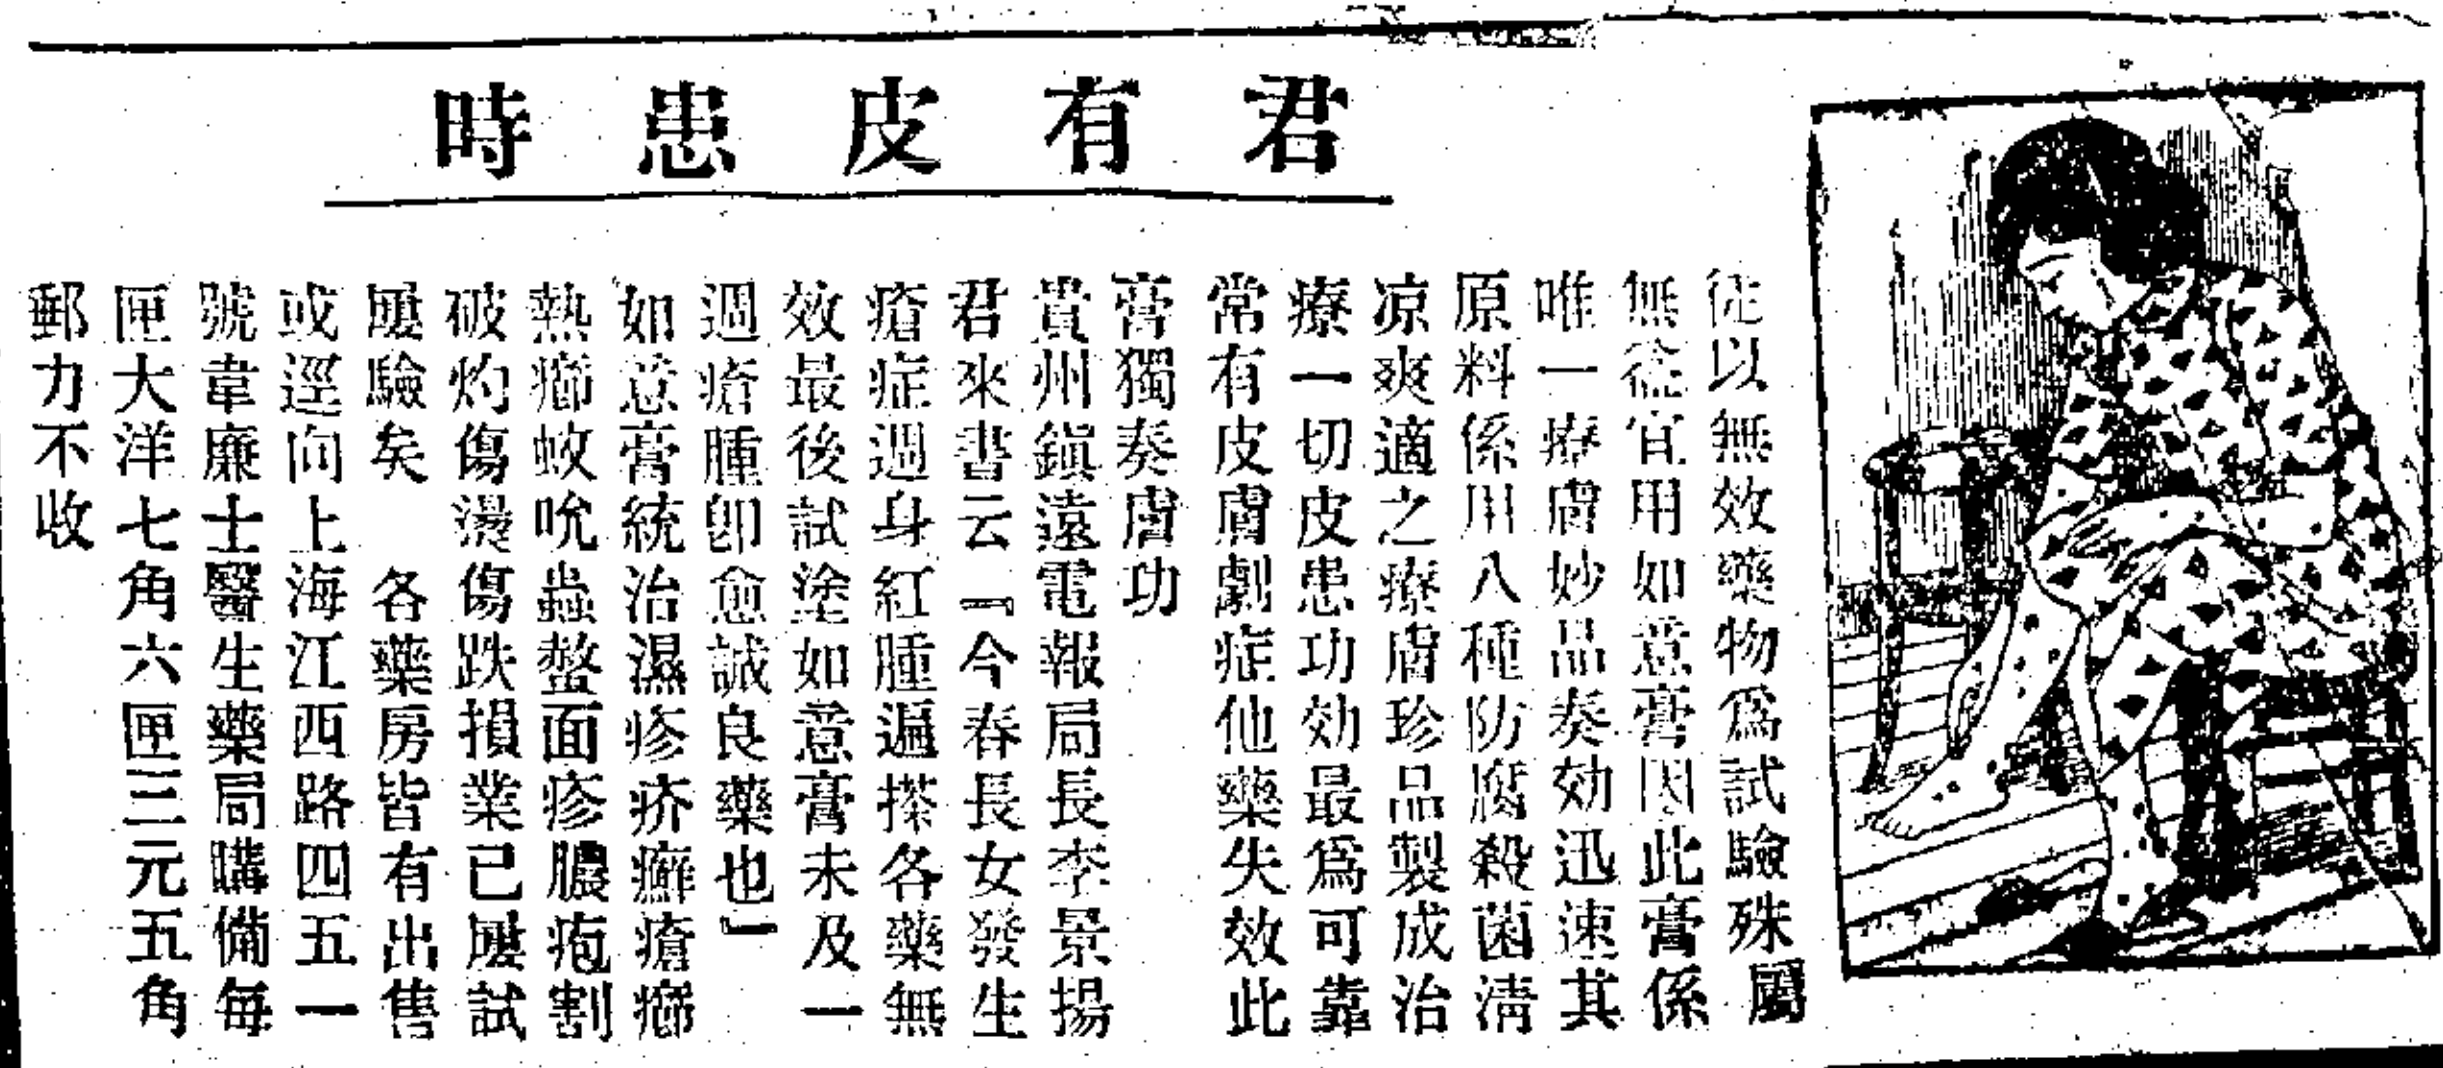 君有皮患時
徒以無效藥物爲試驗殊屬
無從宜用如意膏因此膏係
唯一療膚妙品奏効迅速其
原料係用八種防腐殺菌淸
凉爽適之療膚珍品製成治
療一切皮患功効最爲可靠
常有皮膚劇症他藥失效此
膏獨奏膚功
貴州鎭遠電報局長李景揚
君來書云『今春長女發生
瘡症週身紅腫遍搽各藥無
效最後試塗如意膏未及一
週瘡腫卽愈誠良藥也』
如意膏統治濕疹疥癬瘡癤
熱癤蚊吮蟲螫面疹膿疱割
破灼傷燙傷跌損業已屢試
屢驗矣　各藥房皆有出售
或逕向上海江西路四五一
號韋廉士醫生藥局購備每
匣大洋七角六匣三元五角
郵力不收